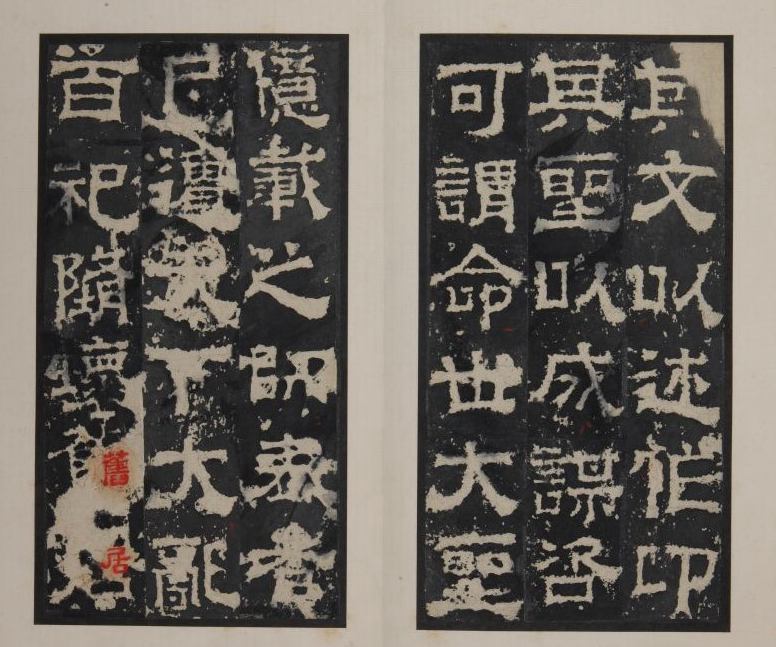 其文以述作卬
其聖以成謀咨
可謂命世大聖
億載之師表者
已遭天下大亂
百祀墮壞
舊居